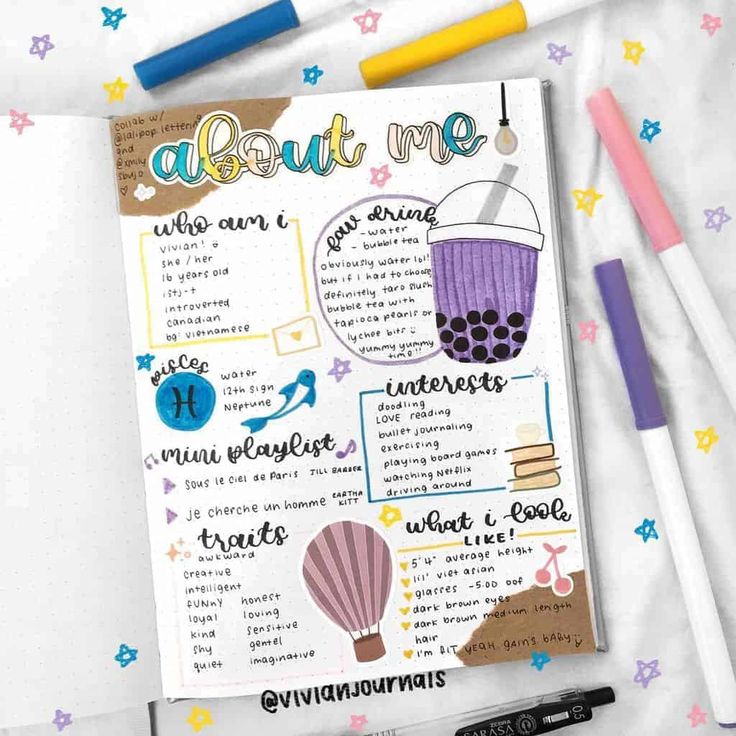 collab w/
@lalipop.lettering
and
@xmily
sbujo
about me
who am i
vivian!
she / her
16 years old
istj-t
introverted
canadian
bg: vietnamese
fav drink
- water
- bubble tea
obviously water lol!
but if I had to choose
definitely taro slush
bubble tea with
tapioca pearls or
lychee bits
yummy yummy
time!!
pisces
water
12th sign
Neptune
interests
doodling
LOVE reading
bullet journaling
exercising
playing board games
watching Netflix
driving around
mini playlist
sous le ciel de Paris JILL BARBER
je cherche un homme EARTHA KITT
traits
awkward
creative
intelligent
funny honest
loyal loving
kind sensitive
shy gentel
quiet imaginative
what i look
LIKE!
5'4" average height
lil' viet asian
glasses -5.00 oof
dark brown eyes
dark brown medium length
hair
I'm FIT YEAH, gain's BABY
@VIVIANJOURNALS
ZEBRA
SARASA
0.5